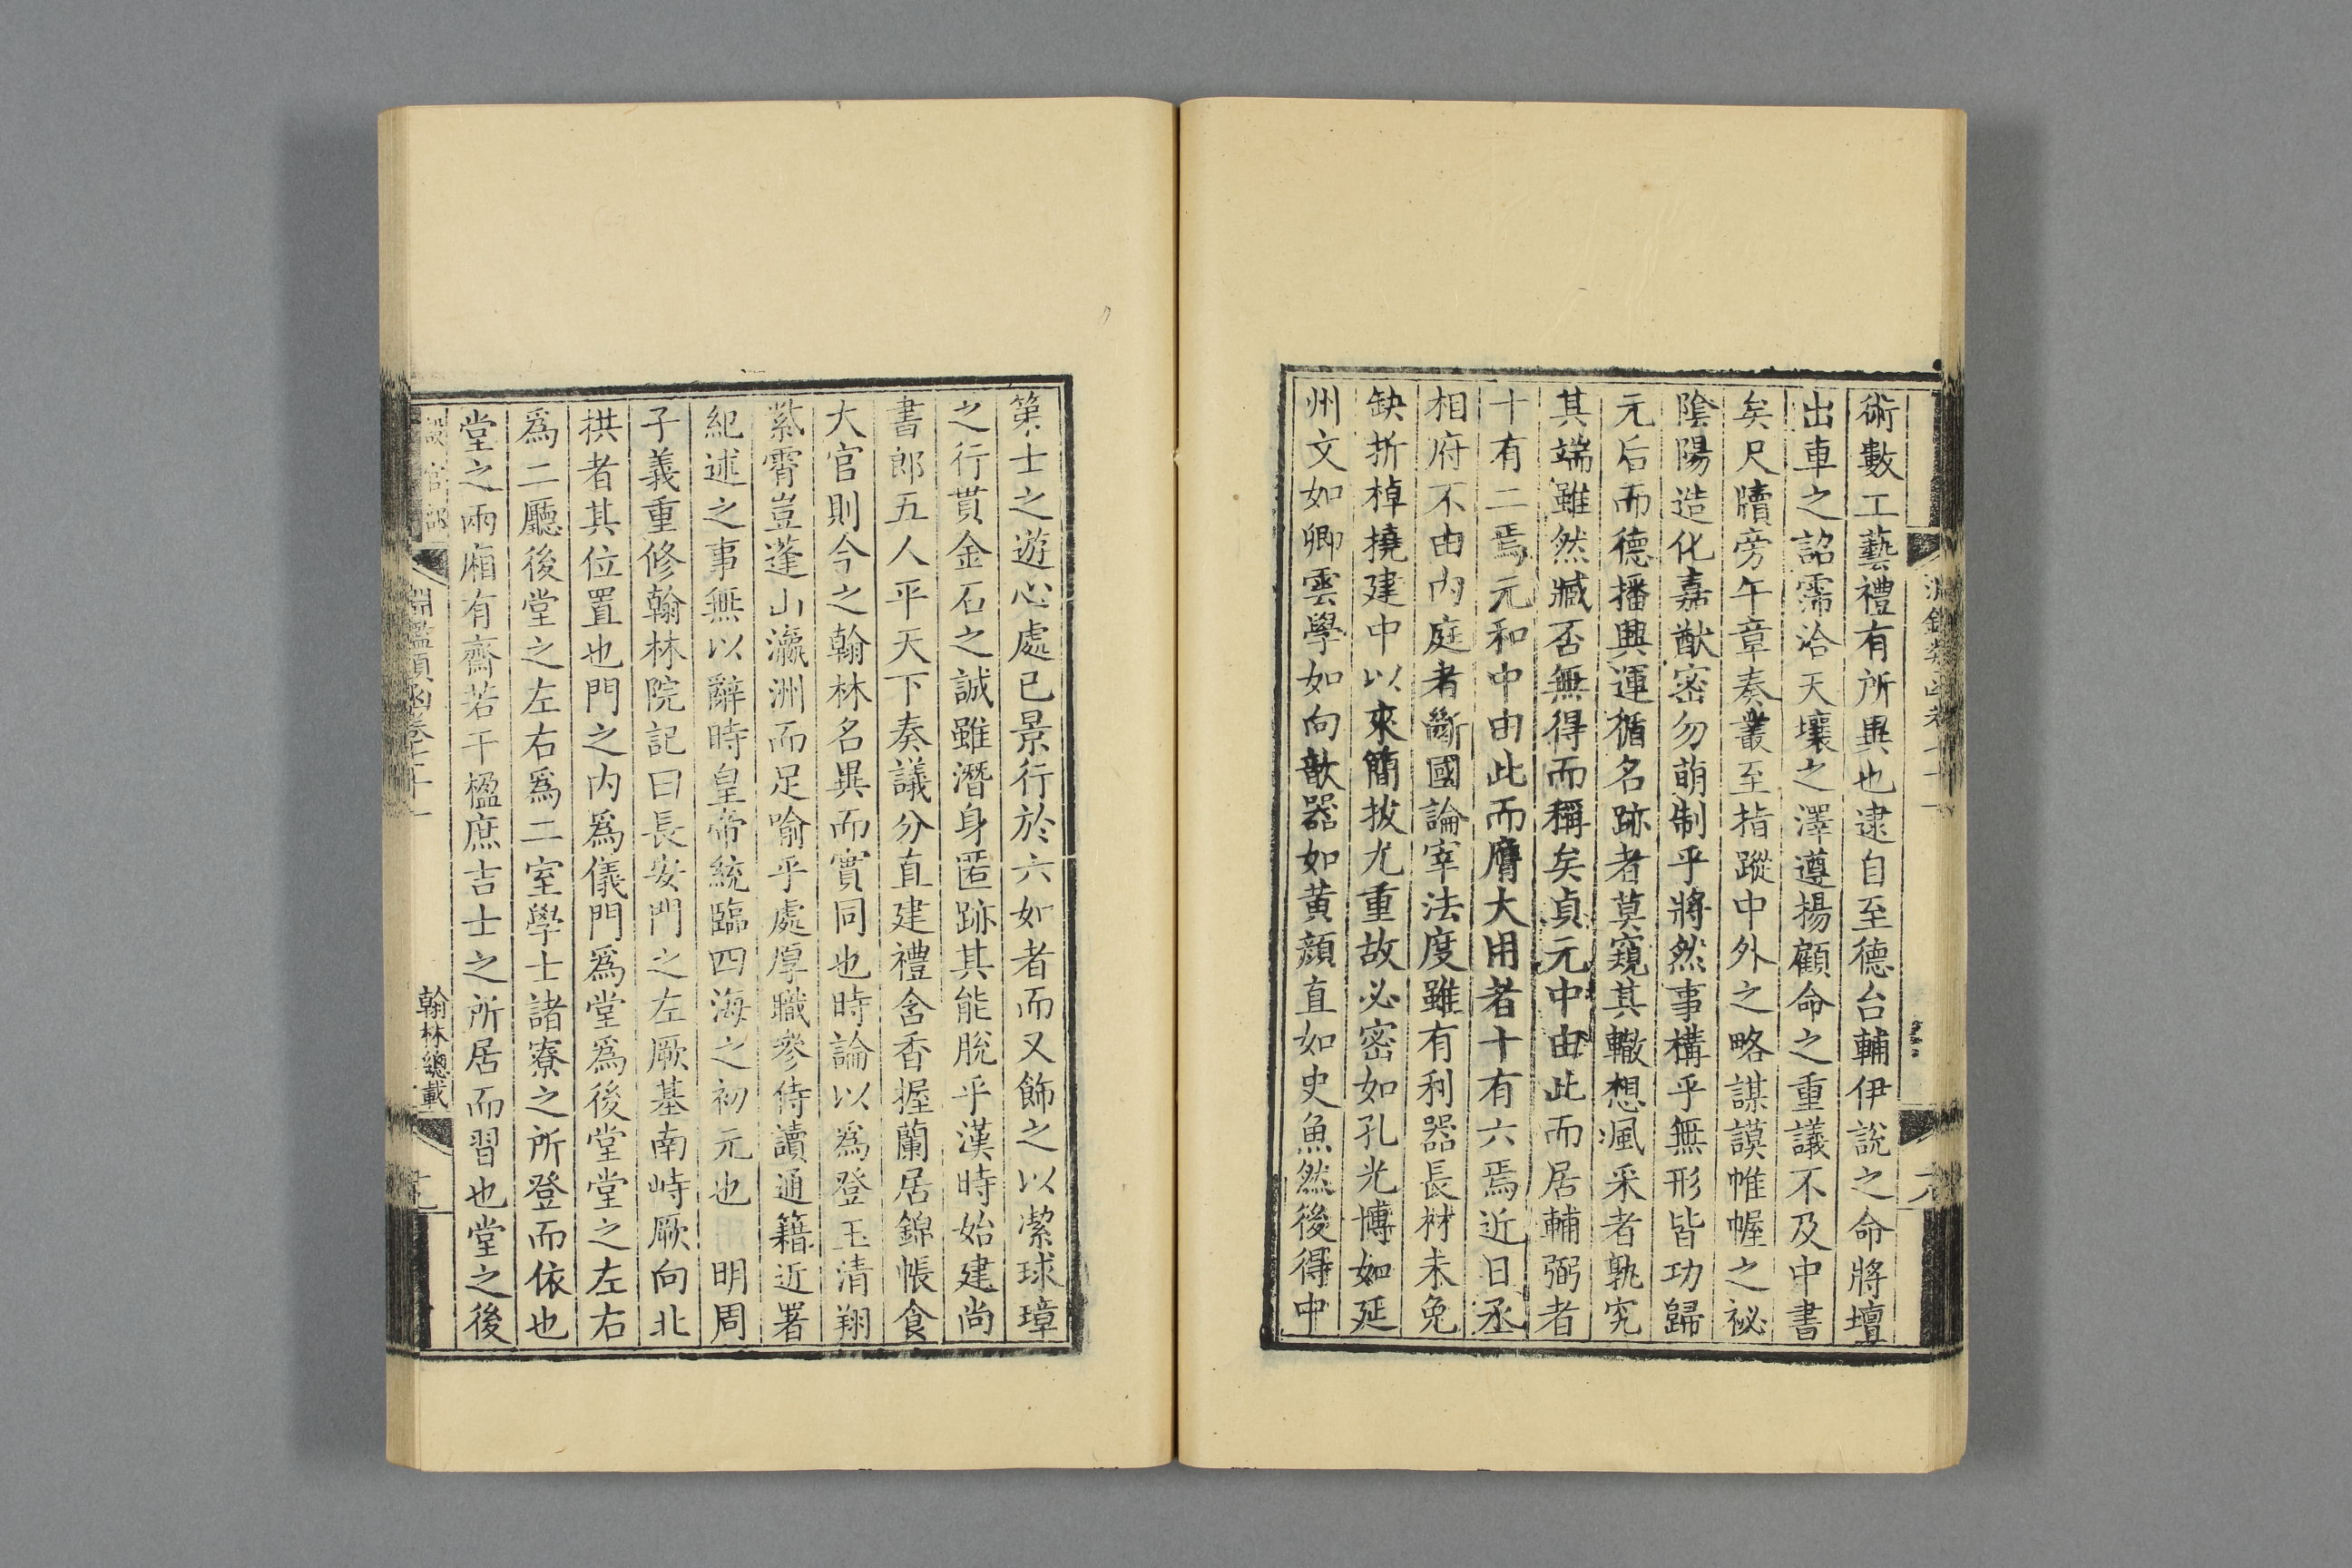 術數工藝禮有所異也逮自至德台輔伊說之命將壇
出車之詔霈洽天壤之澤遵揚顧命之重議不及中書
矣尺牘旁午章奏叢至指蹤中外之略謀謨帷幄之祕
陰陽造化嘉猷密勿萌制乎將然事構乎無形皆功歸
元后而德播興運循名跡者莫窺其轍想風采者孰究
其端雖然臧否無得而稱矣貞元中由此而居輔弼者
十有二焉元和中由此而膺大用者十有六焉近日丞
相府不由內庭者斷國論宰法度雖有利器長材未免
缺折棹撓建中以來簡拔尤重故必密如孔光博如延
州文如卿雲學如向歆器如黃顏直如史魚然後得中
第士之遊心處已景行於六如者而又飾之以潔球璋
之行貫金石之誠雖潛身匿跡其能脫乎漢時始建尚
書郎五人平天下奏議分直建禮含香握蘭居錦帳食
大官則今之翰林名異而實同也時論以為登玉清翔
紫霄豈蓬山瀛洲而足喻乎處厚職參侍讀通籍近署
紀述之事無以辭時皇帝統臨四海之初元也 明周
子義重修翰林院記曰長安門之左厥基南峙厥向北
拱者其位置也門之內為儀門為堂為後堂堂之左右
為二廳後堂之左右為二室學士諸寮之所登而依也
堂之兩廂有齋若干楹庶吉士之所居而習也堂之後
設官部 淵鑑類函卷七十一 翰林總載